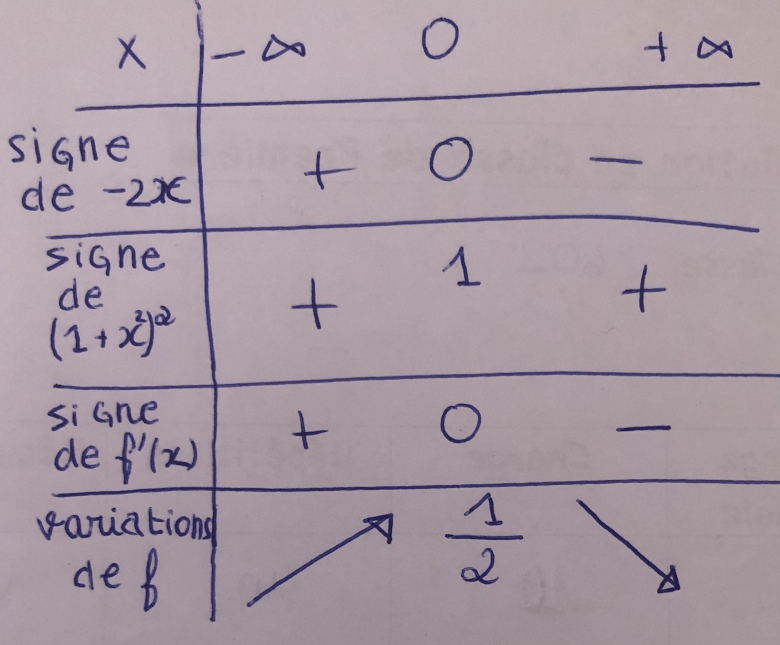 x - ∞ 0 + ∞
signe
de -2x + 0 -
signe
de + 1 +
(1+x²)²
signe
de f'(x) + 0 -
variations
de f 1/2